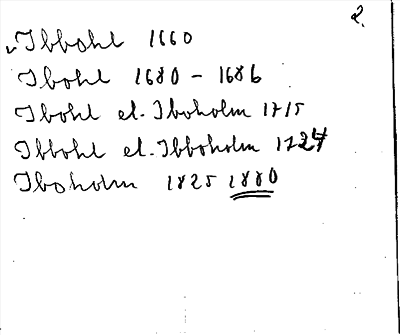 2.
Ibbohl 1660
Ibohl 1680 - 1686
Ibohl el. Iboholm 1715
Ibbohl el. Ibboholm 1727
Iboholm 1825 1880